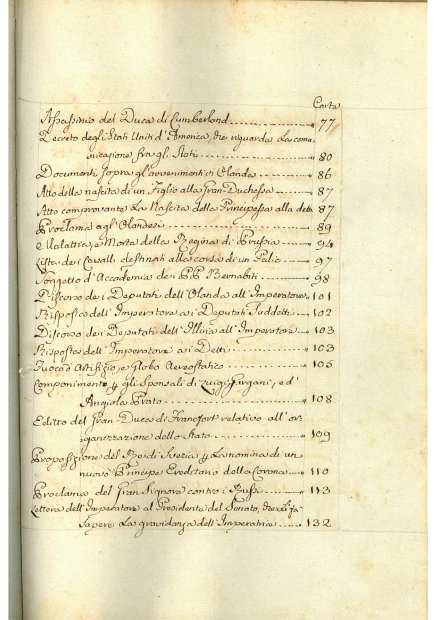 Carta
Assassinio del Duca di Cumberland 77
Decreto degli Stati Uniti d'America, che riguarda la comu=
nicazione fra gli Stati 80
Documenti sopra gl'avvenimenti in Olanda 86
Atto della nascita di un Figlio alla Gran-Duchessa 87
Atto comprovante la Nascita della Principessa alla detta 87
Proclama agl'Olandesi 89
Malattia, e Morte della Regina di Prussia 94
Lista dei Cavalli destinati alla corsa di un Palio 97
Soggetto d'Accademia de' PP Bernabiti 98
Discorso dei Deputati dell'Olanda all'Imperatore 101
Risposta dell'Imperatore ai Deputati suddetti 102
Discorso dei Deputati dell'Illiria all'Imperatore 103
Risposta dell'Imperatore ai Detti 103
Fuoco d'Artifizio, e Globo Aereostatico 105
Componimento p gli Sponsali di Luigi Furgani, ed'
Angiola Prato 108
Editto del Gran-Duca di Francfort relativo all'or=
ganizzazione dello Stato 109
Proposizione del Re di Svezia p la nomina di un
nuovo Principe Ereditario della Corona 110
Proclama del Gran Signore contro i Russi 113
Lettera dell'Imperatore al Presidente del Senato, che fa
sapere la gravidanza dell'Imperatrice 132